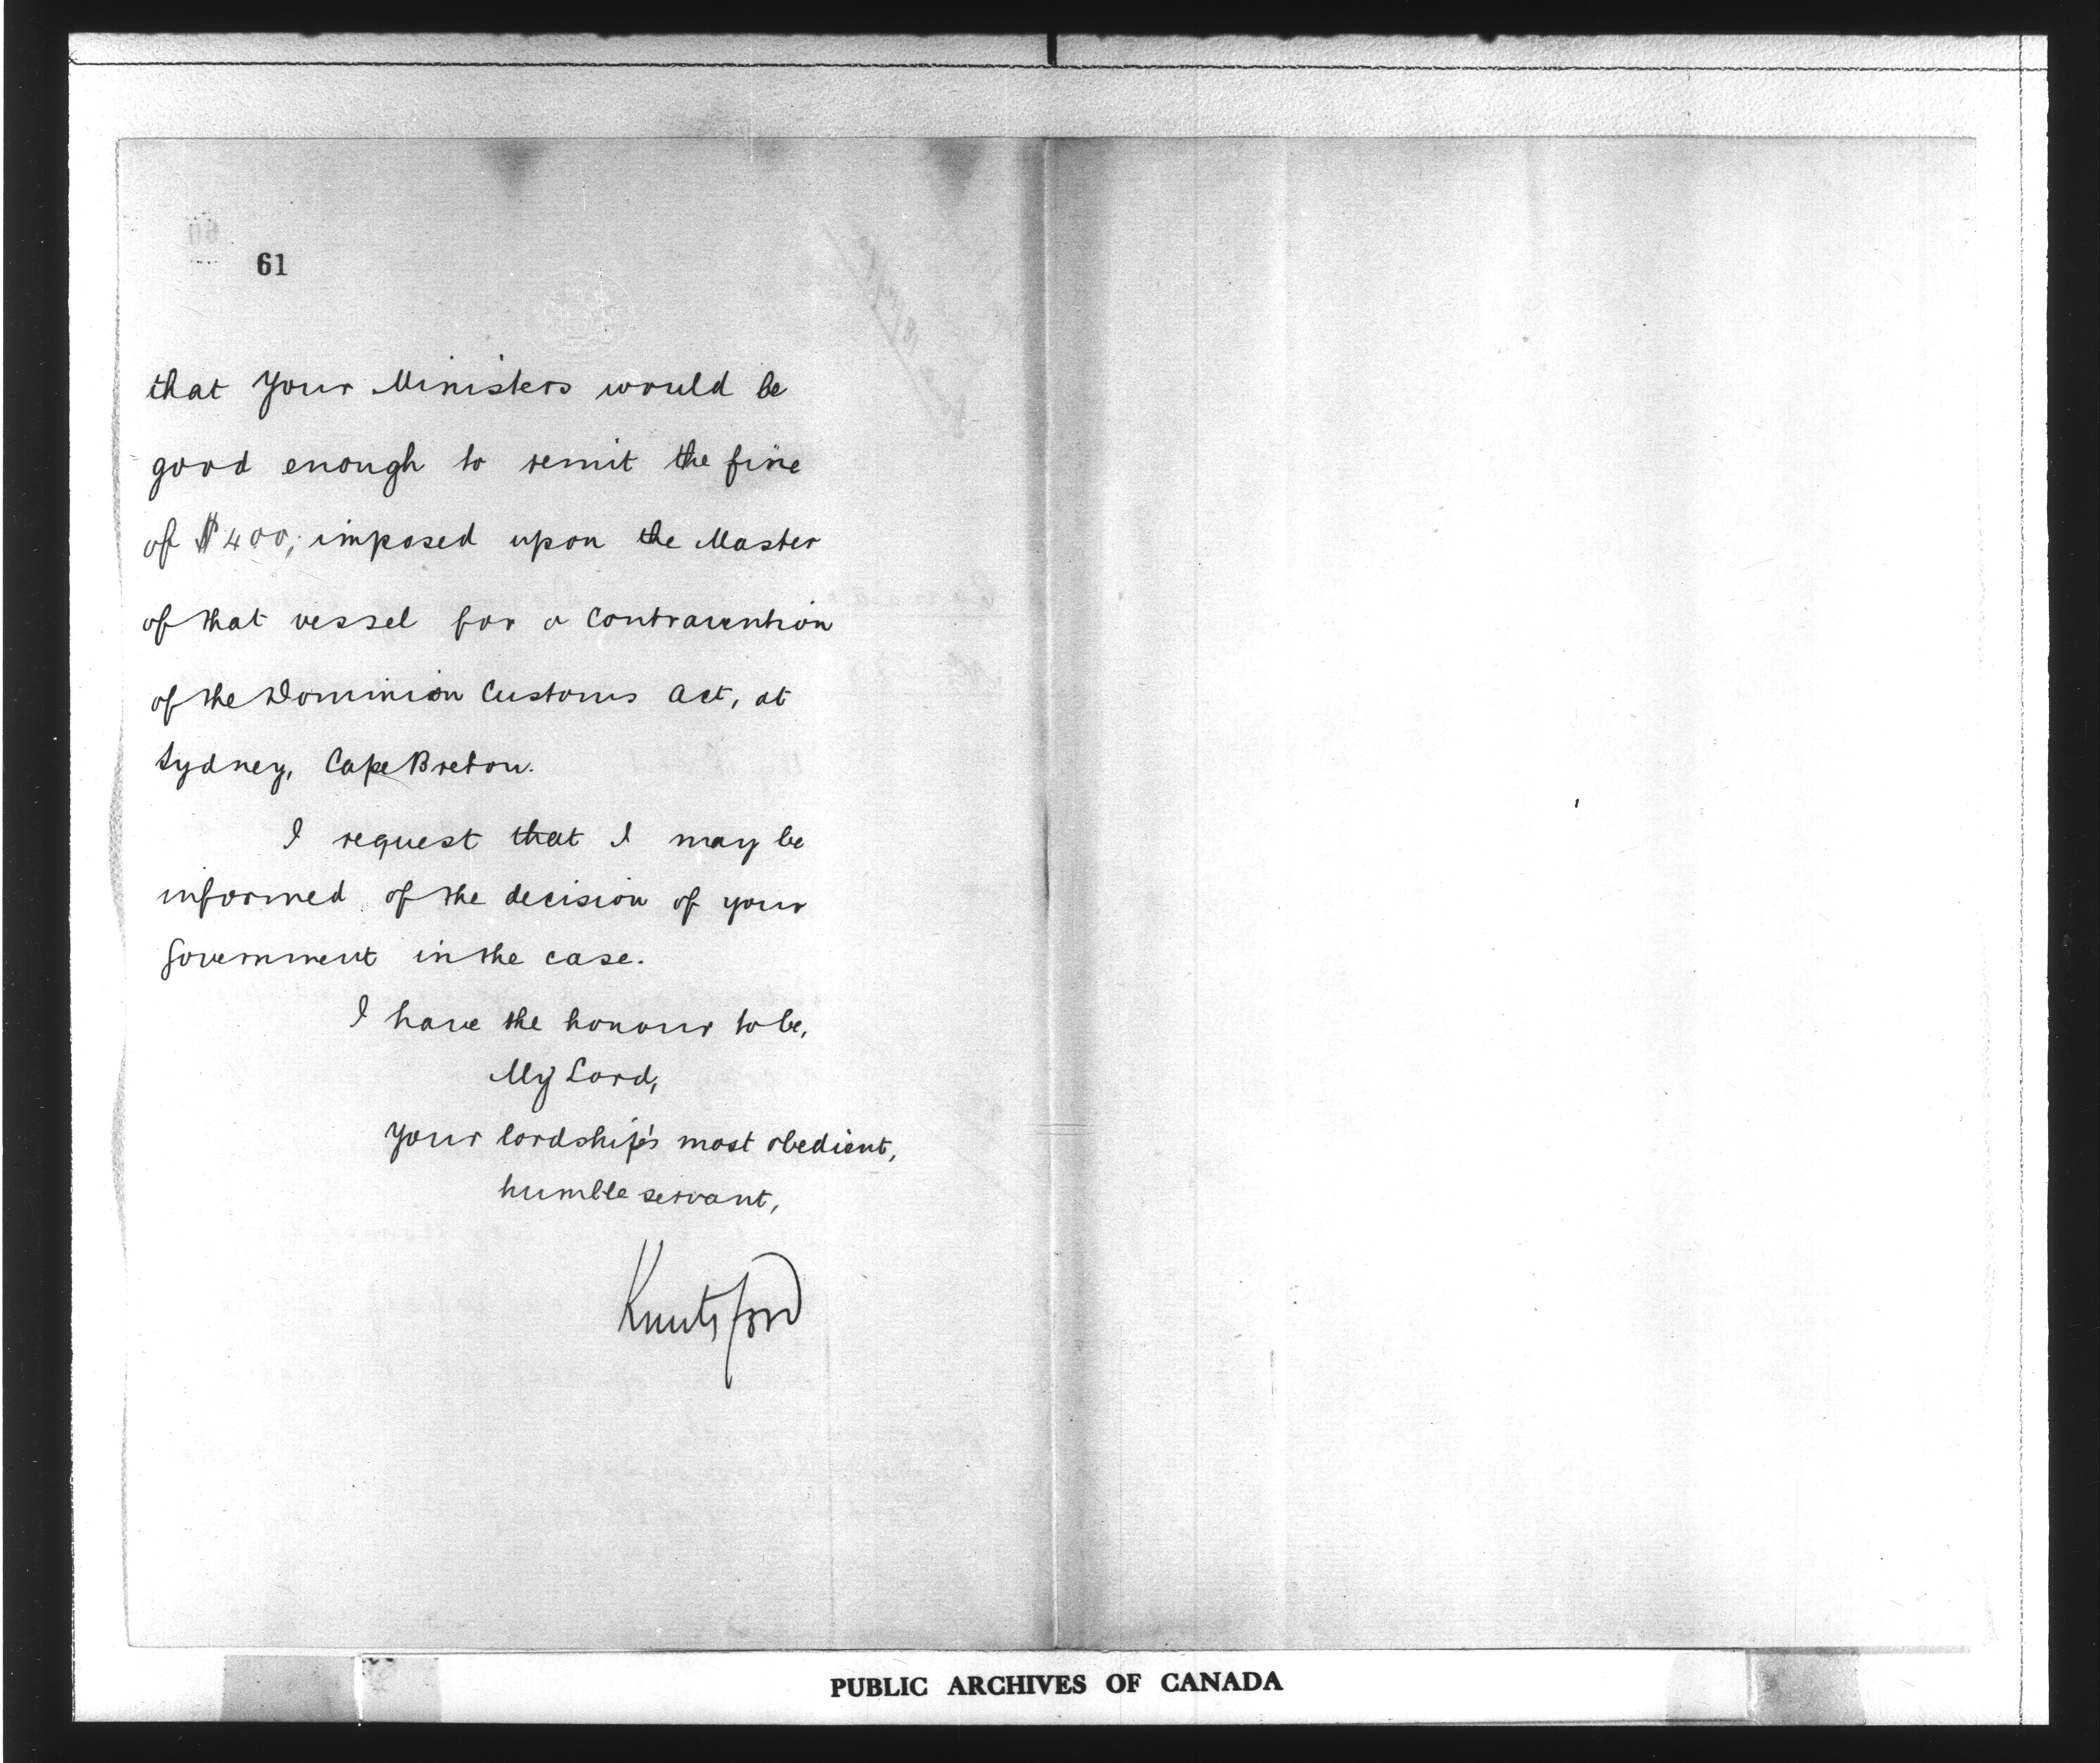 61
that Your Ministers would be
good enough to remit the fine
of $400, imposed upon the Master
of that vessel for a Contravention
of the Dominion Customs Act, at
Sydney, Cape Breton.
I request that I may be
informed of the decision of your
Government in the case.
I have the honour to be,
My Lord,
Your lordship's most obedient,
humble servant,
Knutsford
PUBLIC ARCHIVES OF CANADA